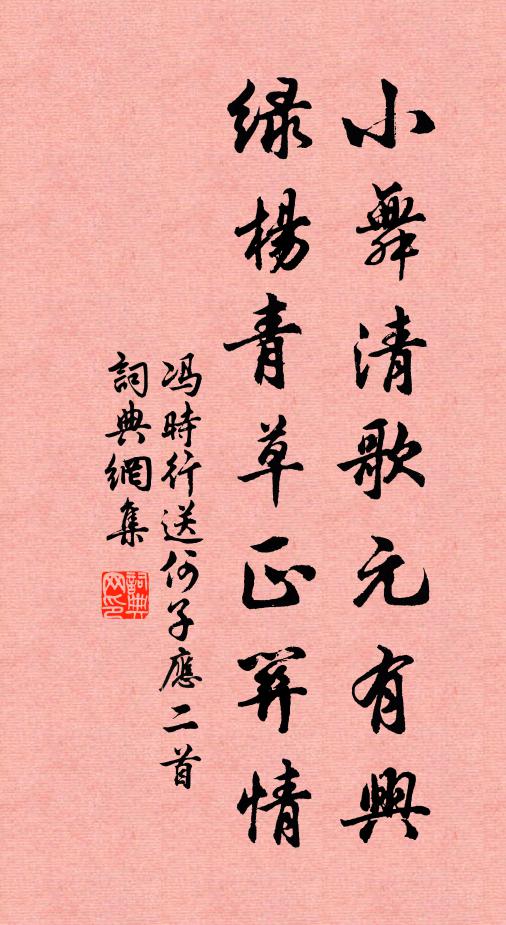 小舞清歌元有興
绿楊青草正關情
冯時行送何子應二首
詞典網集
詞典网印